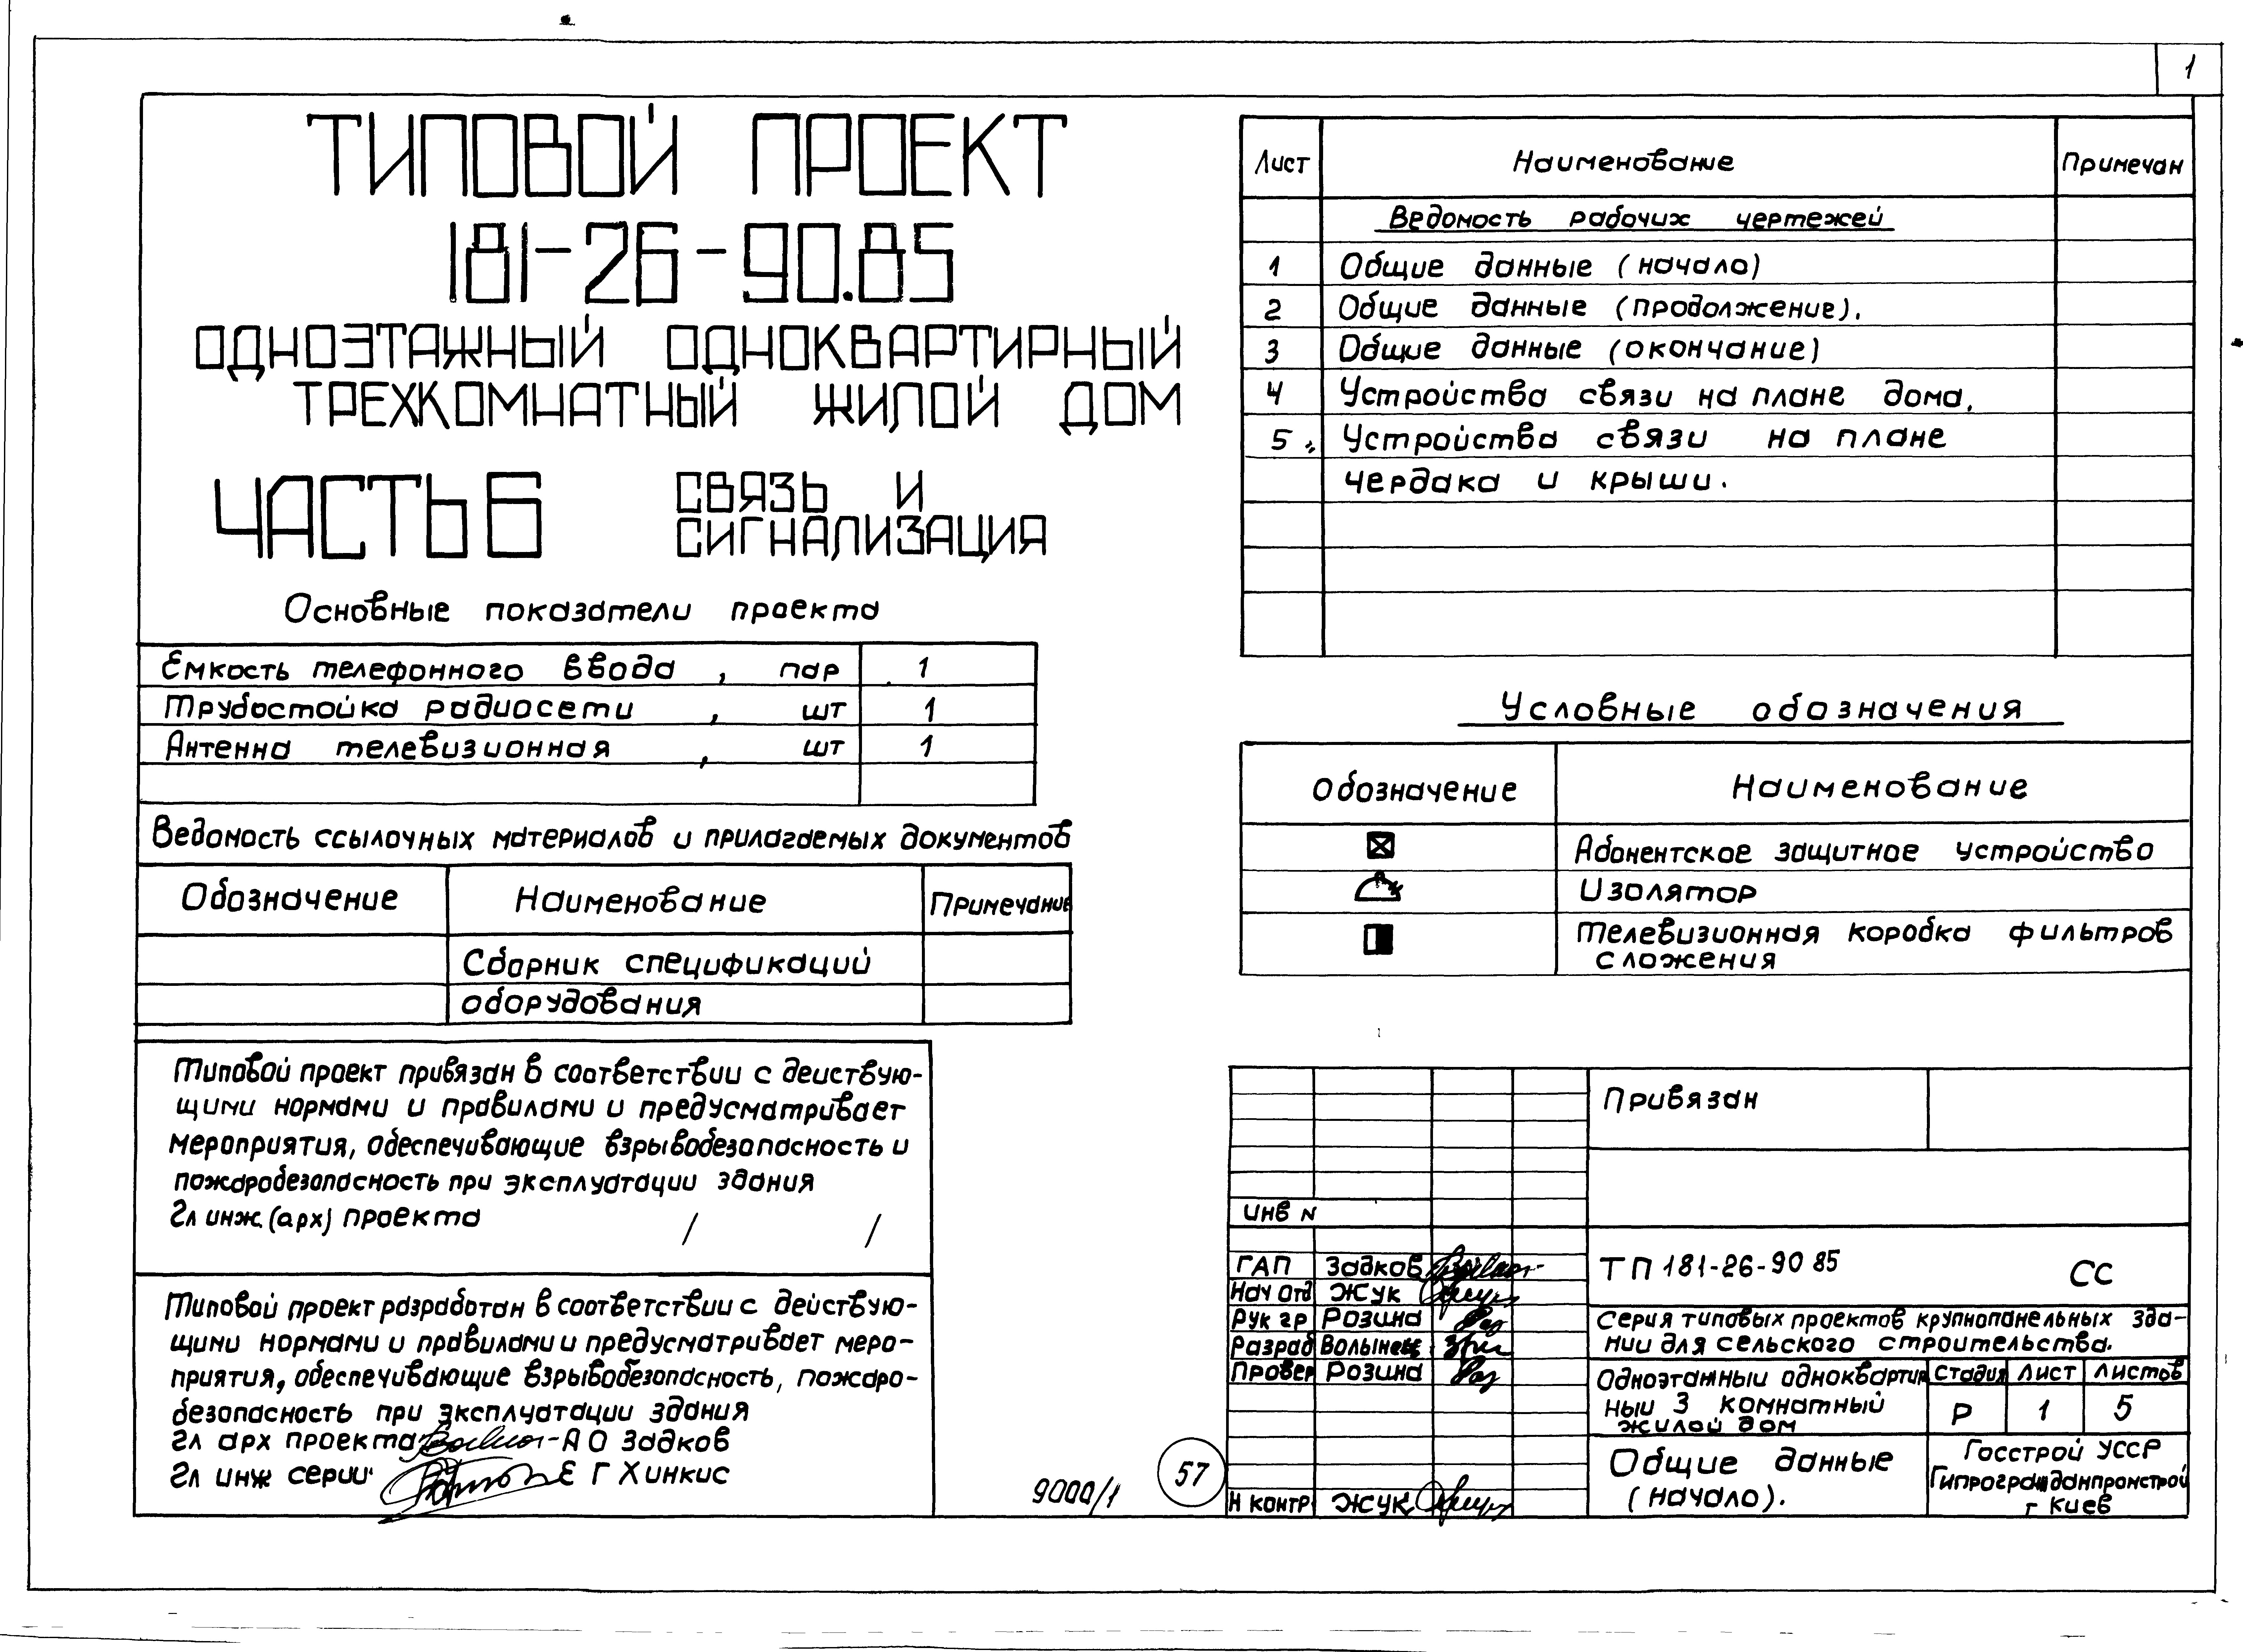 1
ТИПОВОЙ ПРОЕКТ
181-26-90.85
ОДНОЭТАЖНЫЙ ОДНОКВАРТИРНЫЙ
ТРЕХКОМНАТНЫЙ ЖИЛОЙ ДОМ
ЧАСТЬ 6 СВЯЗЬ И
СИГНАЛИЗАЦИЯ
Основные показатели проекта
Емкость телефонного ввода, пар 1
Трубостойка радиосети, шт 1
Антенна телевизионная, шт 1
Ведомость ссылочных материалов и прилагаемых документов
Обозначение Наименование Примечание
Сборник спецификаций
оборудования
Типовой проект привязан в соответствии с деиствую-
щими нормами и правилами и предусматривает
мероприятия, обеспечивающие взрывобезопасность и
пожаробезопасность при эксплуатации здания
Гл инж.(арх) проекта / /
Типовой проект разработан в соответствии с действую-
щими нормами и правилами и предусматривает меро-
приятия, обеспечивающие взрывобезопасность, пожаро-
безопасность при эксплуатации здания
Гл арх проекта А О Задков
Гл инж серии Е Г Хинкис
Лист Наименование Примечан
Ведомость рабочих чертежей
1 Общие данные (начало)
2 Общие данные (продолжение).
3 Общие данные (окончание)
4 Устройства связи на плане дома.
5. Устройства связи на плане
чердака и крыши.
Условные обозначения
Обозначение Наименование
Абонентское защитное устройство
Изолятор
Телевизионная коробка фильтров
сложения
Привязан
инв N
ГАП Задков
Нач отд Жук
Рук гр Розина
Разраб Волынец
Провер Розина
Н контр. Жук
ТП 181-26-90 85 СС
Серия типовых проектов крупнопанельных зда-
нии для сельского строительства.
Одноэтажныи одноквартир
ныи 3 комнатный
жилой дом
Стадия Лист Листов
Р 1 5
Общие данные
(начало).
Госстрой УССР
Гипрогражданпромстрой
г Киев
9000/1
57